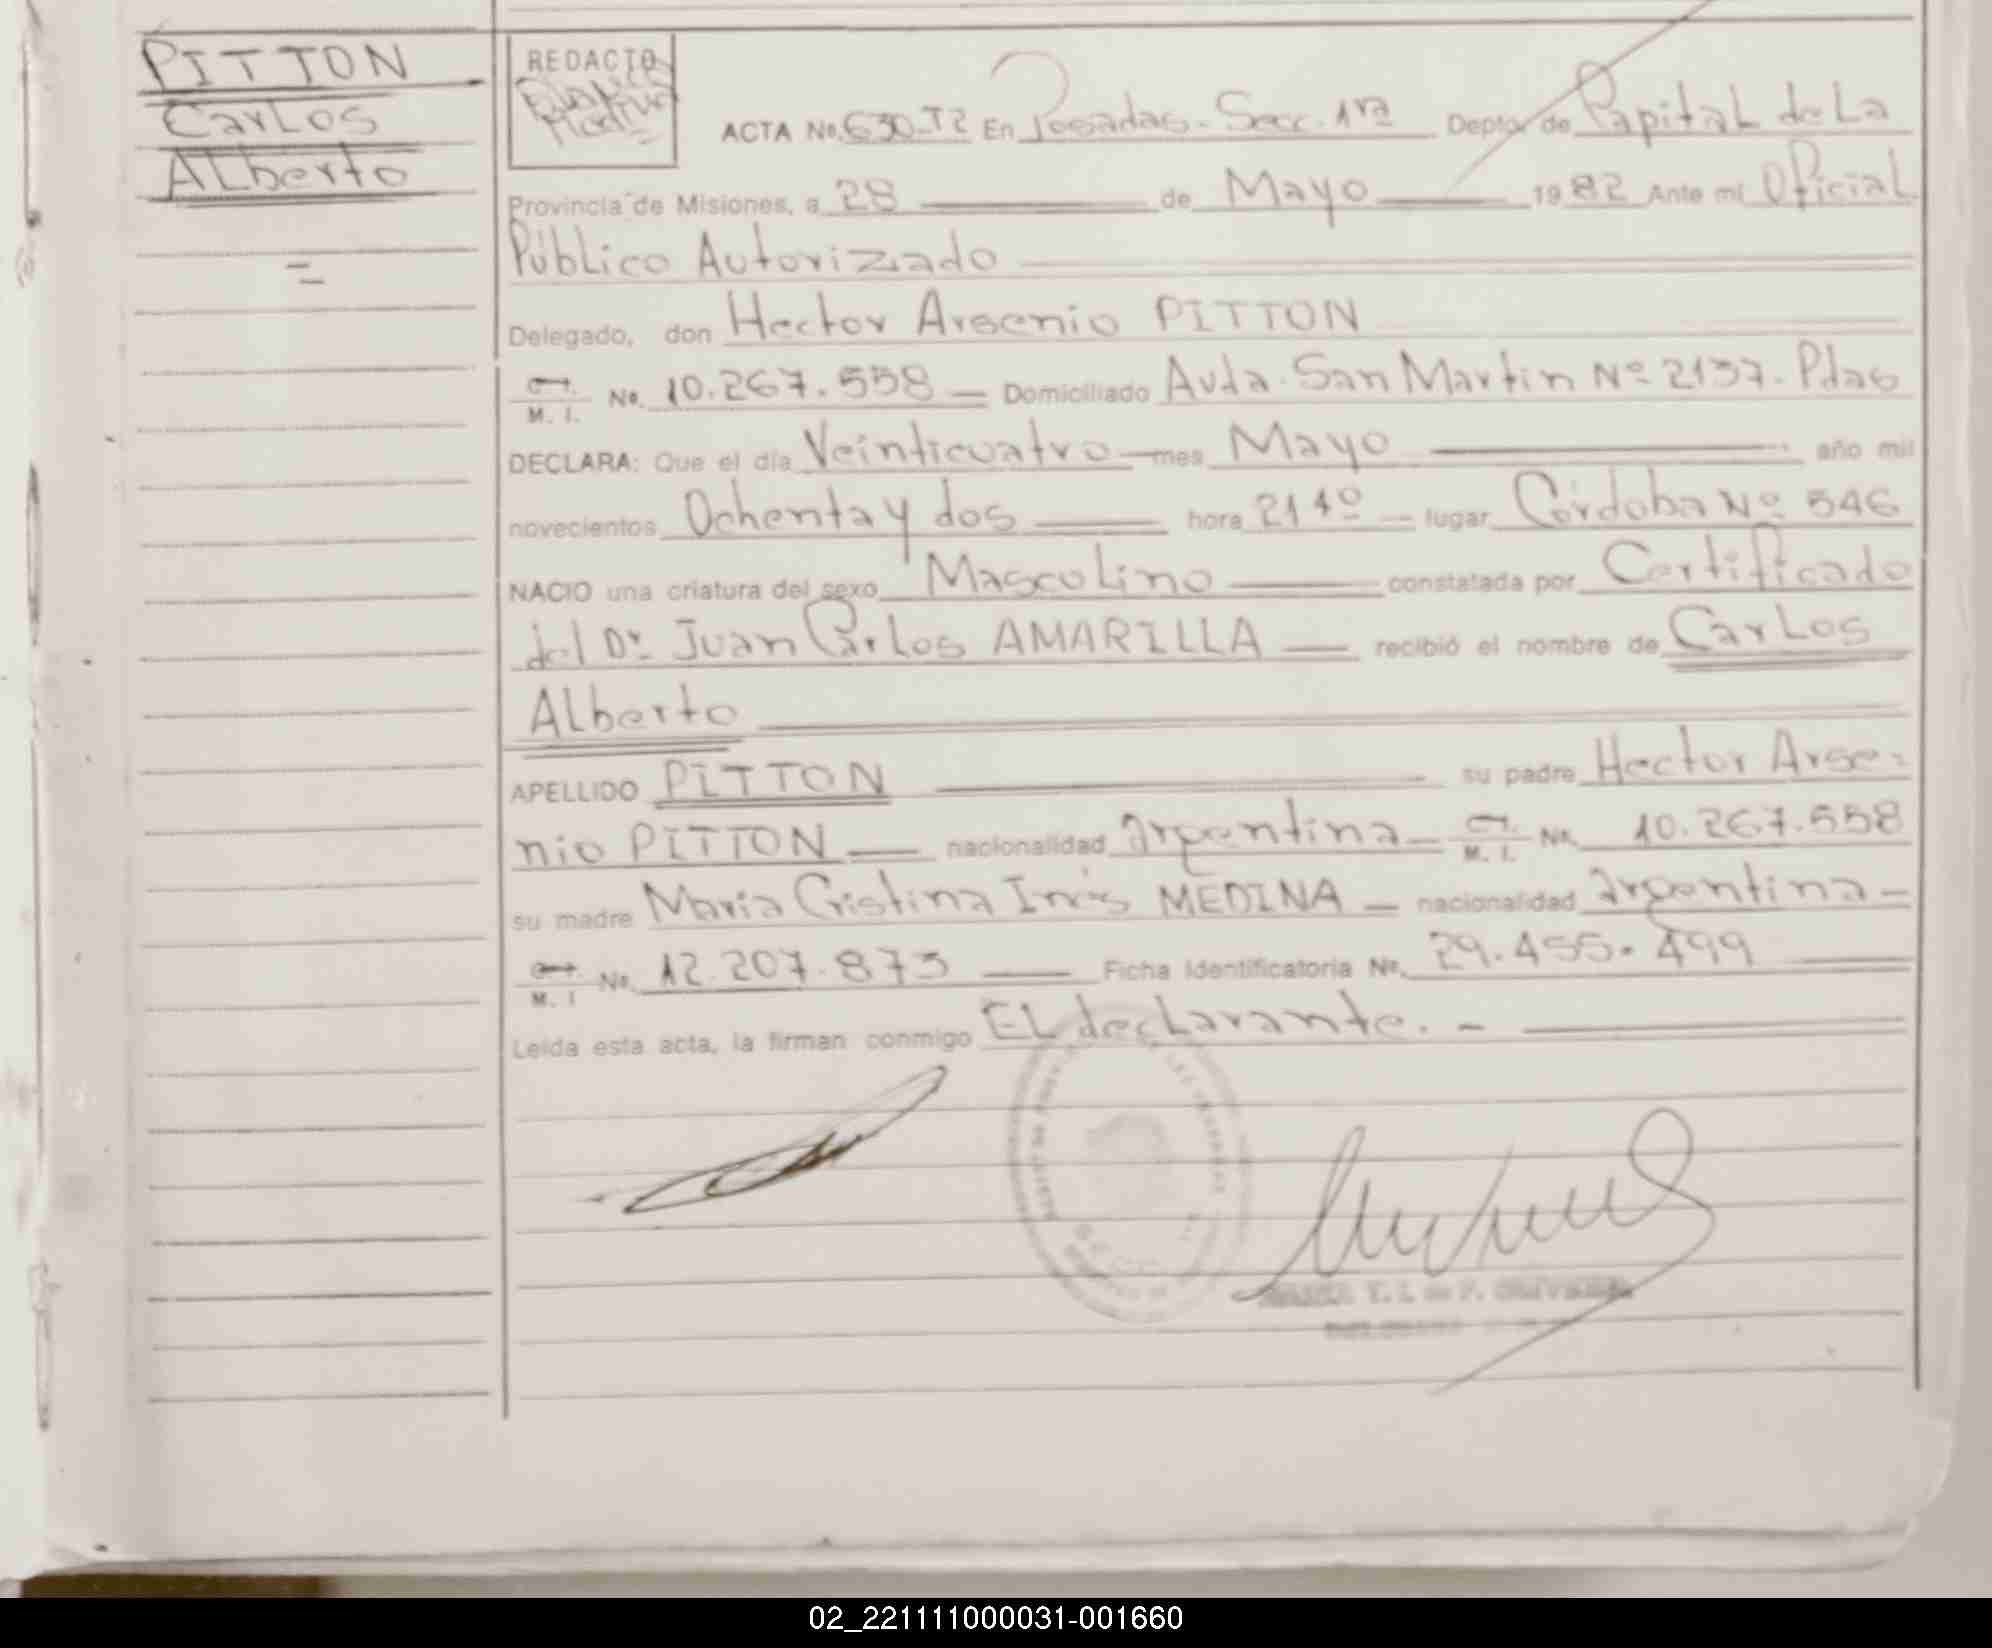 PITTON
Carlos
Alberto
REDACTO
ACTA No. 630-T2 En Posadas - Secc. 1ra Depto. de Capital de La
Provincia de Misiones, a 28 de Mayo 1982 Ante mi Oficial
Público Autorizado
Delegado, don Hector Arsenio PITTON
M. I. No. 10.267.558 Domiciliado Avda. San Martin Nº 2137. Pdas
DECLARA: Que el día Veinticuatro mes Mayo año mil
novecientos Ochenta y dos hora 21 40 lugar Córdoba Nº 546
NACIO una criatura del sexo Masculino constatada por Certificado
del Dr Juan Carlos AMARILLA recibió el nombre de Carlos
Alberto
APELLIDO PITTON su padre Hector Arse-
nio PITTON nacionalidad Argentina M. I. No. 10.267.558
su madre Maria Cristina Inés MEDINA nacionalidad Argentina
M. I No. 12.207.873 Ficha Identificatoria No. 29.455.499
Leída esta acta, la firman conmigo El declarante. -
02_221111000031-001660